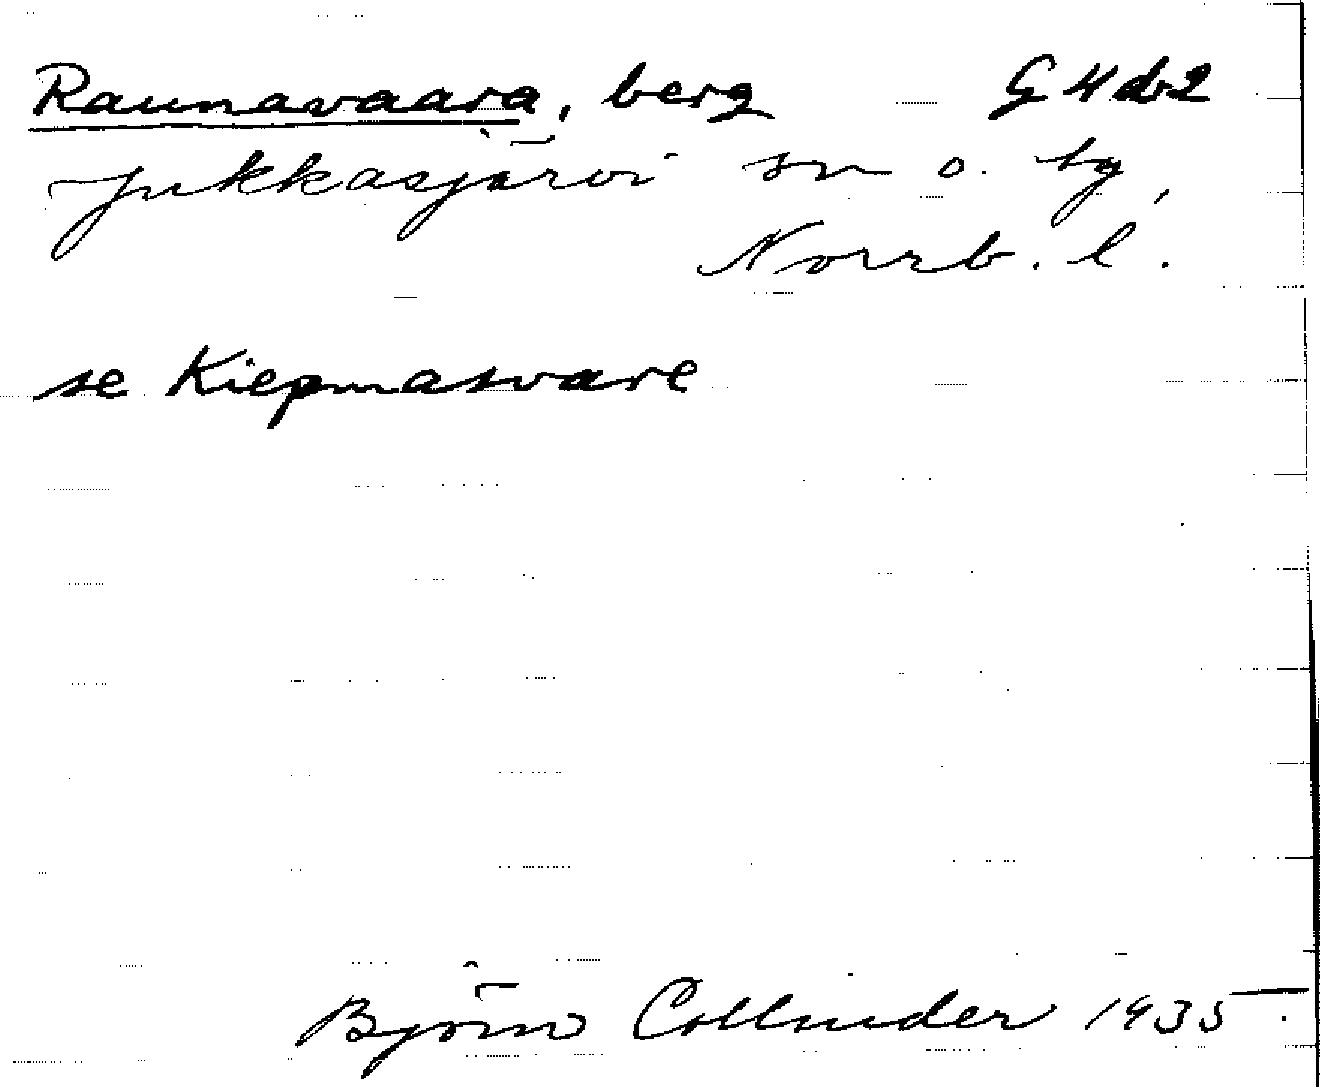 Raunavaara, berg G 4 db2
Jukkasjärvi sn o. tg,
Norrb. l.
se Kiepmasvare
Björn Collinder 1935.